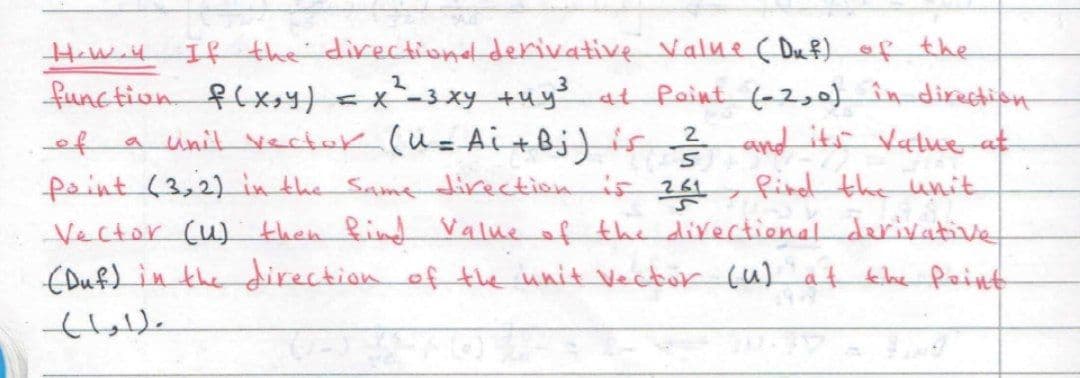 H.W.4 If the directional derivative Value (Duf) of the
function f(x,y) = x²-3xy +4y³ at Point (-2,0) in direction
of a unit vector (u = Ai + Bj) is 2/5 and its Value at
point (3,2) in the Same direction is 261/5, find the unit
Vector (u) then find Value of the directional derivative
(Duf) in the direction of the unit Vector (u) at the Point
(1,1).